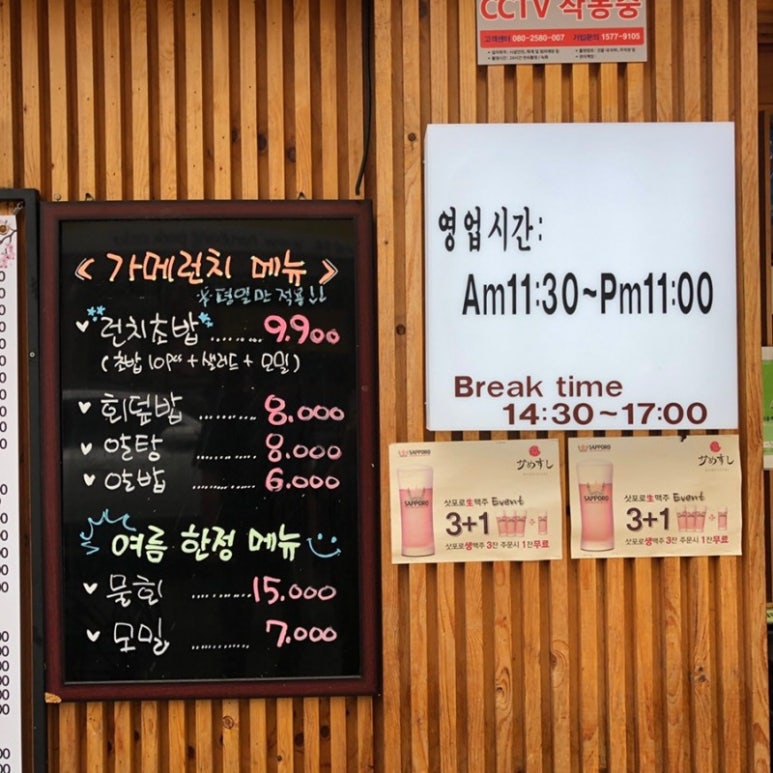 CCTV 작동중
고객센터 080-2580-007 가입문의 1577-9105
《 가메런치 메뉴 》
※평일만 적용!!
런치초밥 ......... 9.900
(초밥 10pcs + 샐러드 + 모밀)
회덮밥 .......... 8.000
알탕 .......... 8.000
알밥 .......... 6.000
여름 한정 메뉴
물회 .......... 15.000
모밀 .......... 7.000
영업시간:
Am11:30~Pm11:00
Break time
14:30~17:00
SAPPORO
がめすし
SAPPORO
삿포로生맥주 Event
3+1
삿포로생맥주 3잔 주문시 1잔무료
SAPPORO
がめすし
SAPPORO
삿포로生맥주 Event
3+1
삿포로생맥주 3잔 주문시 1잔무료